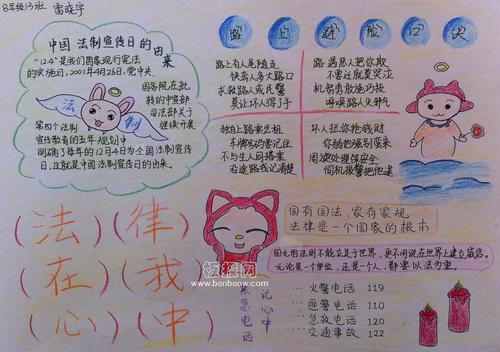 8年级13班 雷晓宇
中国法制宣传日的由来
"12.4"是我们国家现行宪法
的实施问,2001年4月26日,党中央、
国务院在批
转的中宣部
司法部关于
继续开展
第四个法制
宣传教育的五年规划中
明确了每年的12月4日为全国法制宣传
日,这就是中国法制宣传日的由来。
法 制
路上避险口决
路上有人尾随走
快去人多大路口
求救路人或民警
莫让坏人得了手
路遇恶人把你欺
不要还就莫哭泣
机智勇敢施巧技
呼喊路人灭邪气
独自上路来出租
车牌号码要记住
不与生人同搭乘
右途路我记清楚
坏人拦你抢钱财
你弱他强别蛮来
周旋处理保安全
伺机报警把他逮
(法)(律)
(在)(我)
(心)(中)
国有国法,家有家规
法律是一个国家的根本
国无国法则不能立足于世界,更不用说在世界上建立威信。
无论是一个单位,还是一个人,都要以法为重。
饭搬网
www.banbaow.com
紧急电话
记心中
... 火警电话 119
... 匪警电话 110
... 急救电话 120
... 交通事故 122